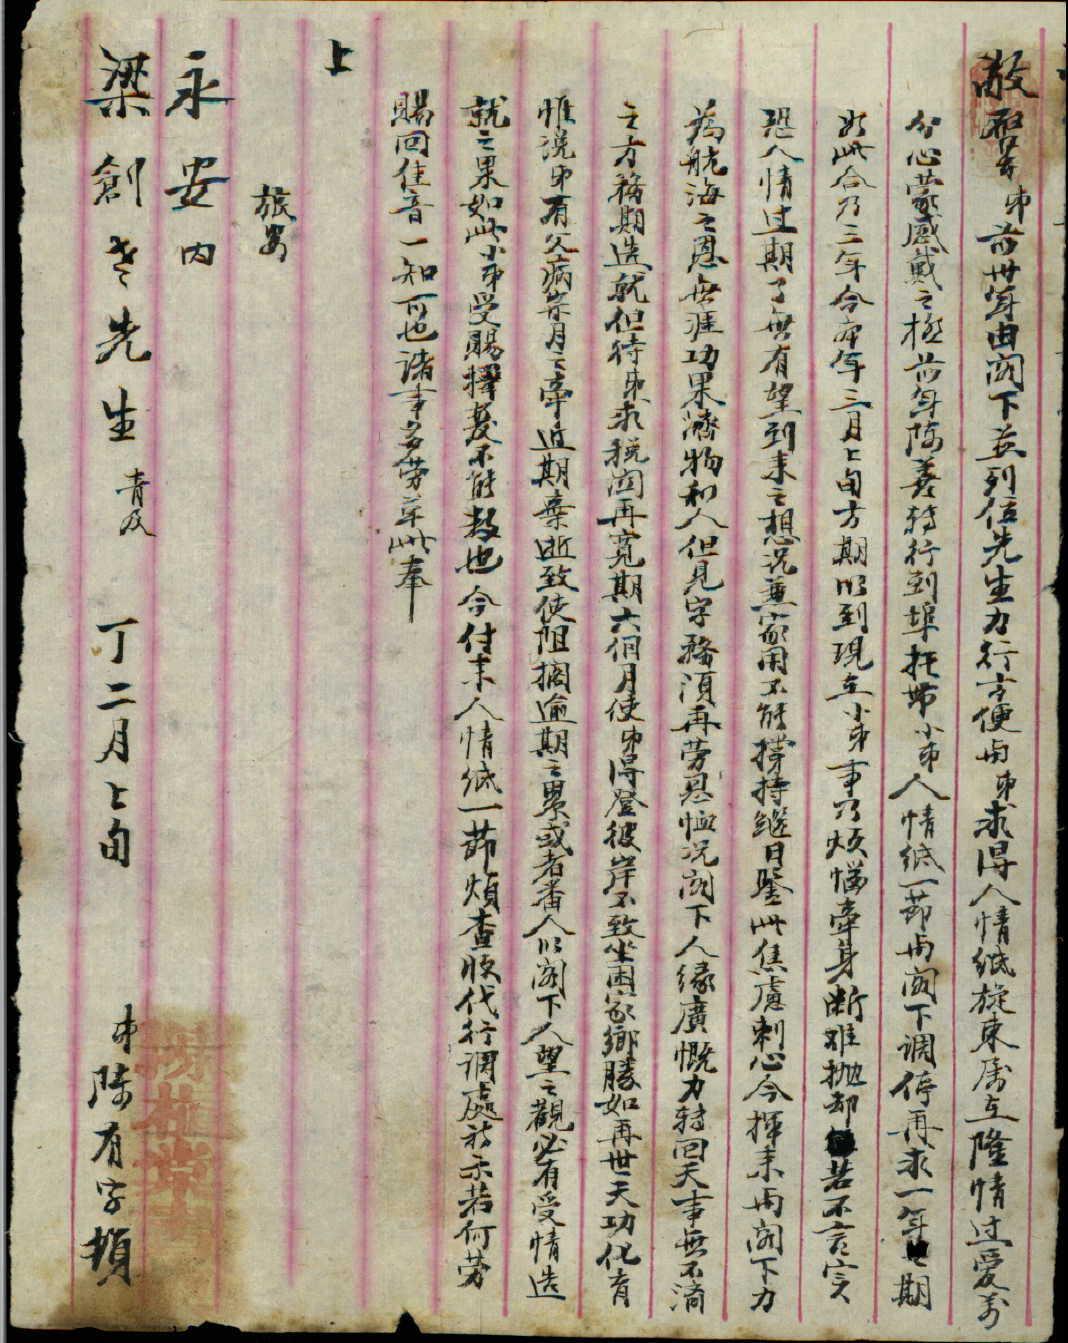 敬啓者弟前卅年由閣下並列位先生力行方便與弟求得人情紙旋東居立隆情过愛萬
分心蒙感戴之極前年陈養轉行到埠托带小弟人情紙一節與閣下调停再求一年期
於此合乃二年今本年三月上旬方期以到現在小弟事乃烦惱牽身断难抛却若不言实
恐人情过期了無有望到来之想况兼家用不能撑持継日鑒此焦慮刺心今揮来與閣下力
為航海之恩無涯功果濟物和人但見字務須再劳恩恤况閣下人緣廣慨力轉回天事無不濟
之方務期造就但待弟求税関再寛期六個月使弟得登彼岸不致坐困家鄉勝如再世天功化育
惟说弟有父病業月之牵近期棄逝致使阻擱逾期之累或者番人以閣下人望之觀必有受情造
就之果如此小弟受賜擇髮不能数也今付来人情紙一節煩查收代行调處祈示若何劳
賜回佳音一知可也諸事多劳草此奉
上
旅安
永安内
梁創老先生 青及 丁二月上旬 弟陈有字頓